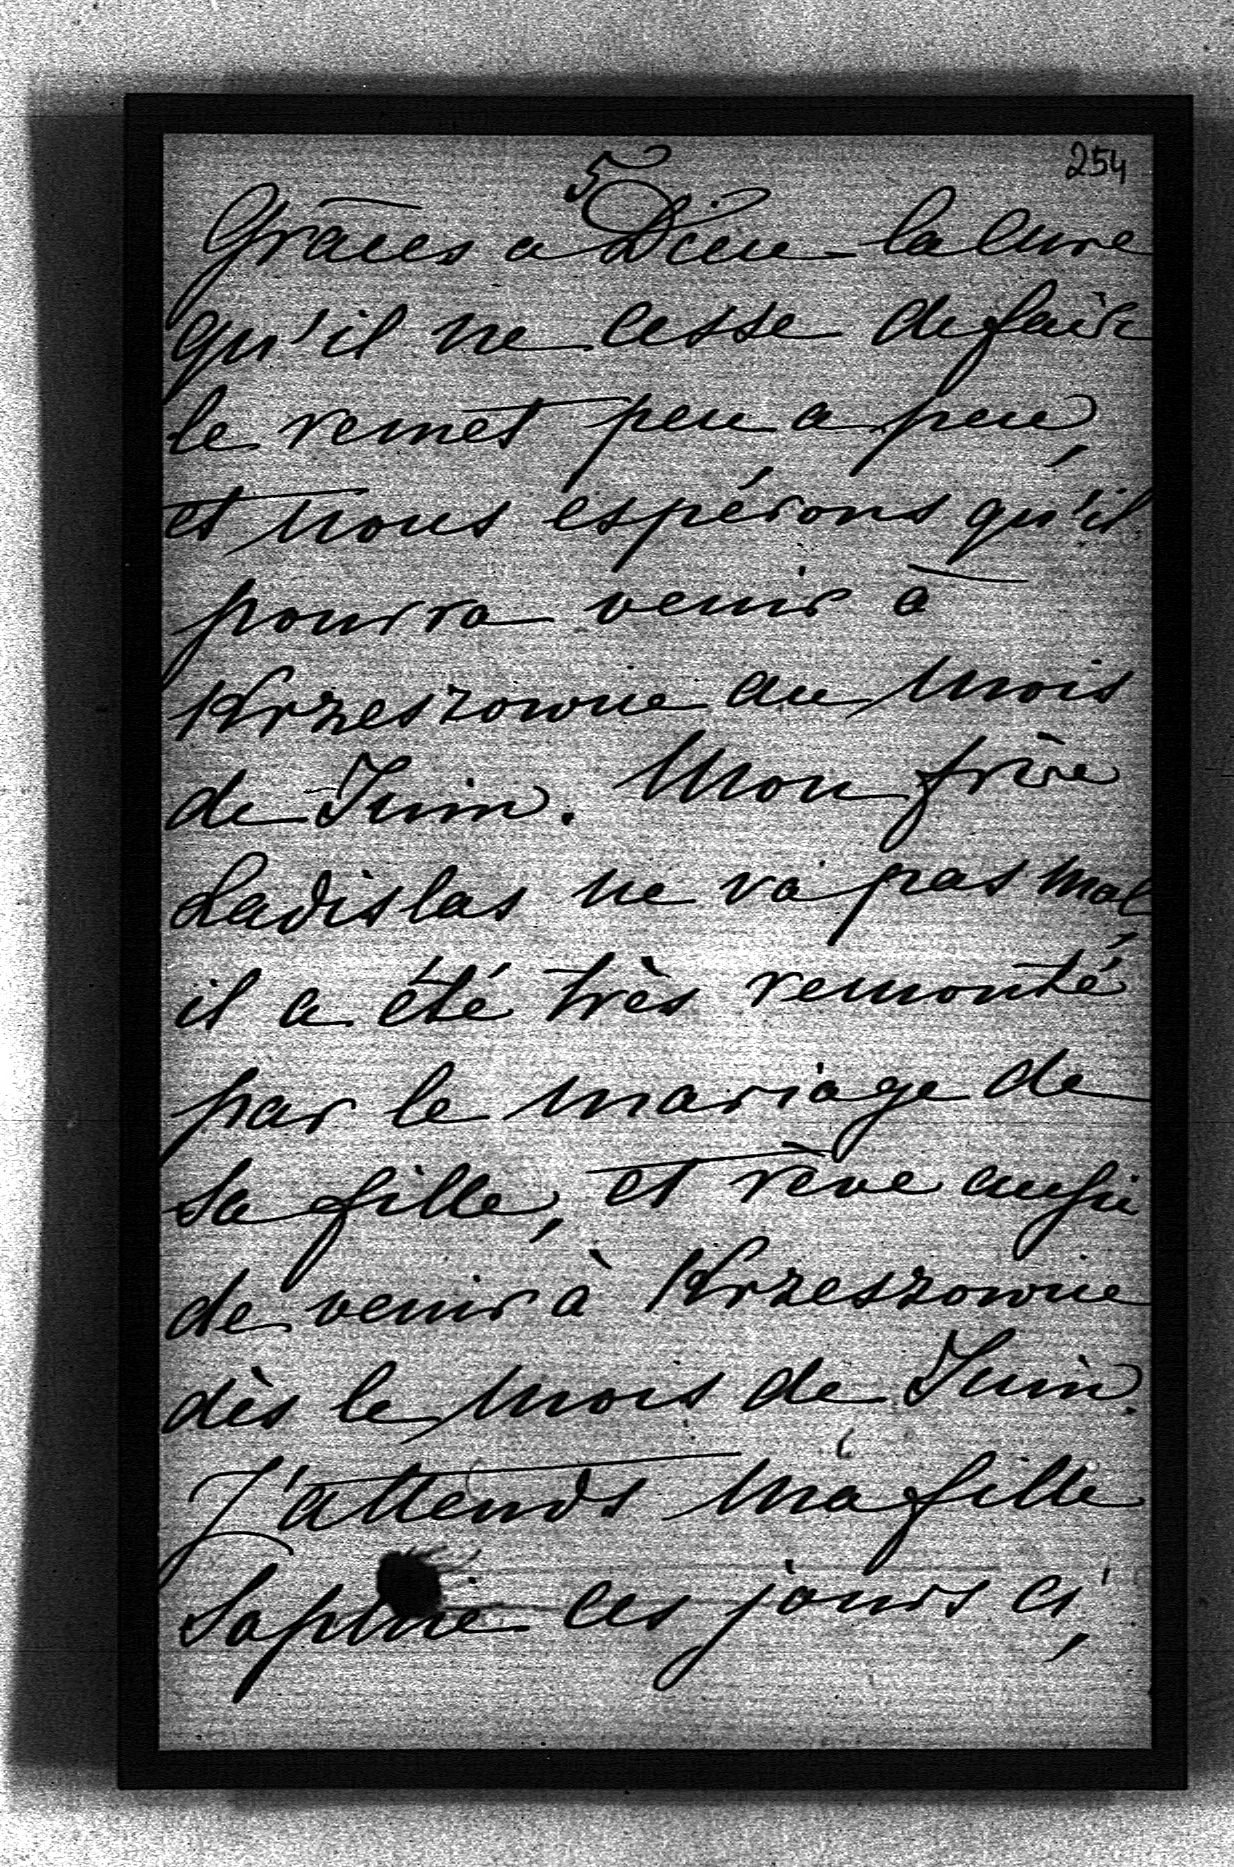 254
5
Grâces a Dieu la cure
qu'il ne cesse de faire
le remet peu a peu,
et nous espérons qu'il
pourra venir à
Krzeszowice au mois
de Juin. Mon frère
Ladislas ne va pas mal,
il a été très remonté
par le mariage de
sa fille, et rêve aussi
de venir à Krzeszowice
dès le mois de Juin.
J'attends ma fille
Sophie ces jours ci,